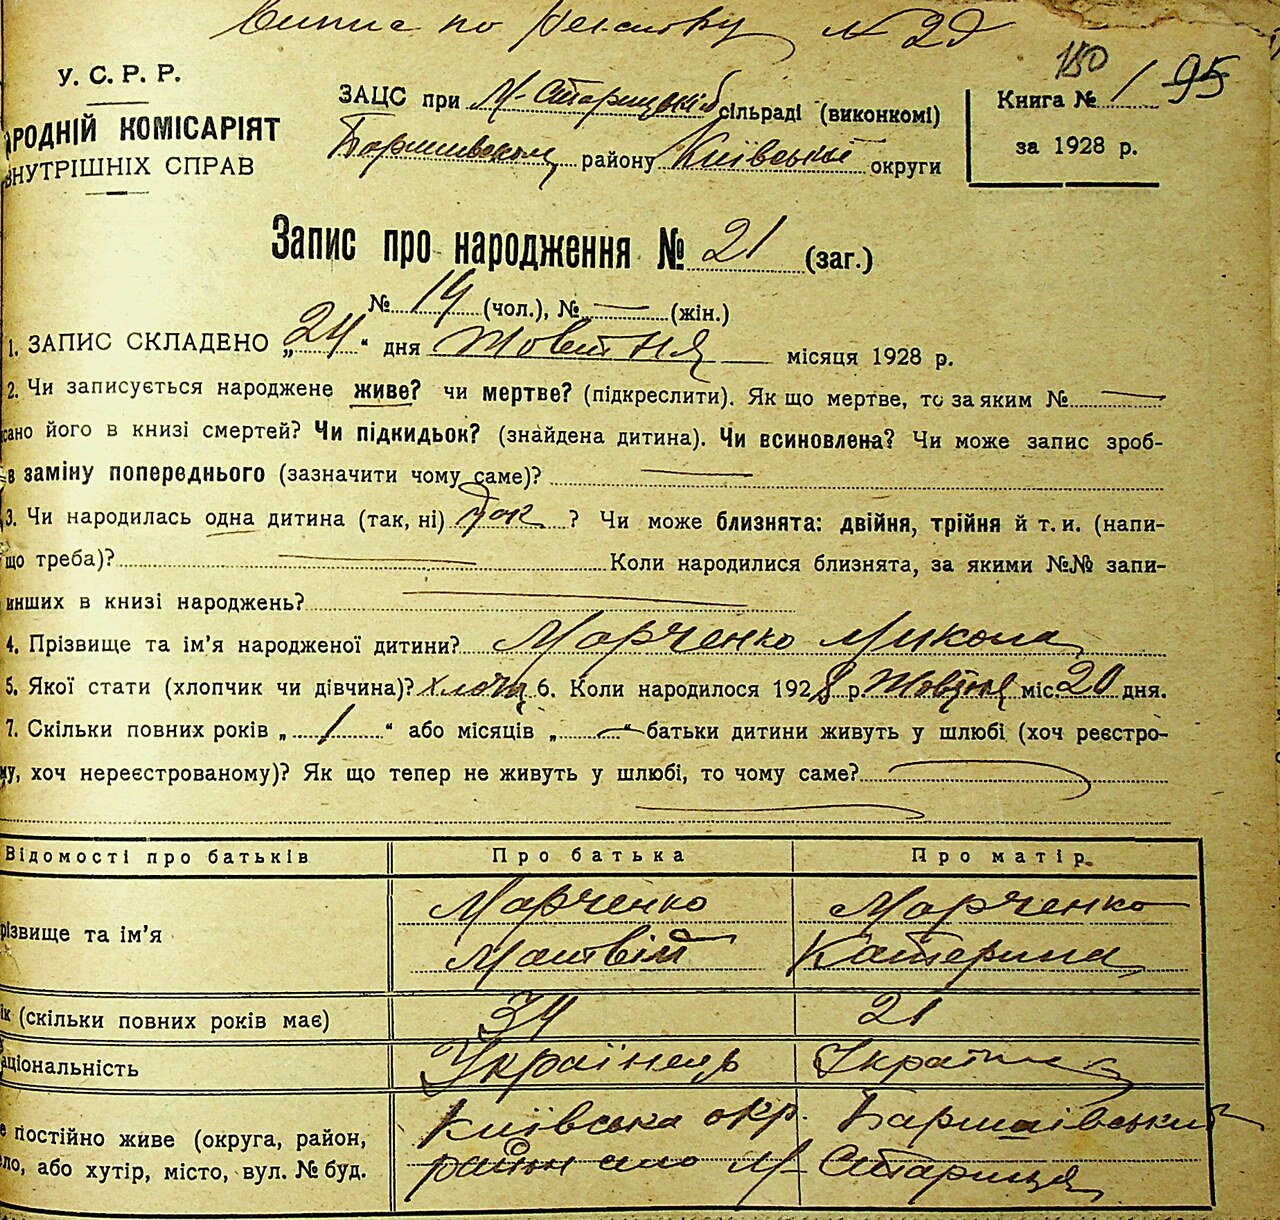 Випис по № 2д
У. С. Р. Р.
РОДНІЙ КОМІСАРІЯТ
ВНУТРІШНІХ СПРАВ
ЗАЦС при М-Старицькій сільраді (виконкомі)
району Київської округи
150
Книга № 1 95
за 1928 р.
Запис про народження № 21 (заг.)
№ 14 (чол.), № — (жін.)
1. ЗАПИС СКЛАДЕНО „24“ дня Жовтня місяця 1928 р.
2. Чи записується народжене живе? чи мертве? (підкреслити). Як що мертве, то за яким № —
сано його в книзі смертей? Чи підкидьок? (знайдена дитина). Чи всиновлена? Чи може запис зроб-
в заміну попереднього (зазначити чому саме)? —
3. Чи народилась одна дитина (так, ні) так ? Чи може близнята: двійня, трійня й т. и. (напи-
що треба)? — Коли народилися близнята, за якими №№ запи-
инших в книзі народжень? —
4. Прізвище та ім'я народженої дитини? Марченко Микола
5. Якої стати (хлопчик чи дівчина)? хлопц 6. Коли народилося 1928 р. Жовтня міс. 20 дня.
7. Скільки повних років „ 1 “ або місяців „ — “ батьки дитини живуть у шлюбі (хоч реєстро-
му, хоч нереєстрованому)? Як що тепер не живуть у шлюбі, то чому саме? —
Відомості про батьків Про батька Про матір
різвище та ім'я Марченко Матвій Марченко Катерина
ік (скільки повних років має) 34 21
аціональність Українець Українка
е постійно живе (округа, район, Київська окр. Баришівський
ло, або хутір, місто, вул. № буд. район село М- Стариця